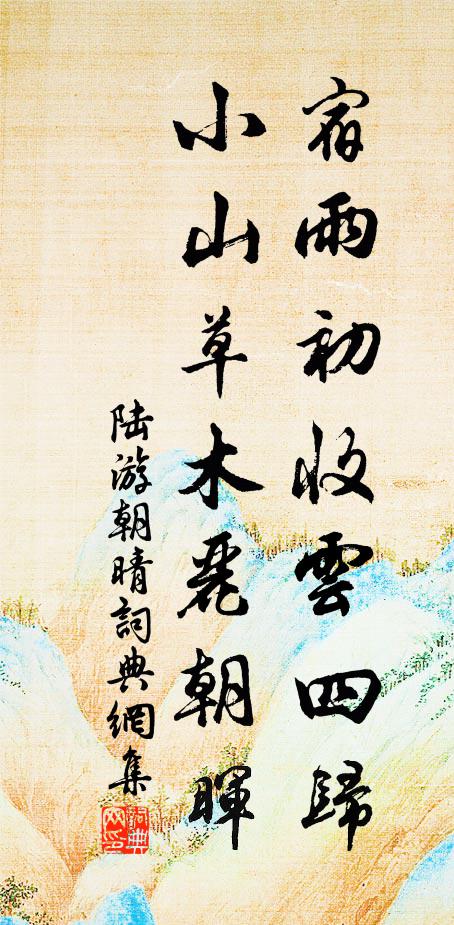 宿雨初收雲四歸
小山草木麗朝暉
陆游朝晴詞典網集
詞典网印